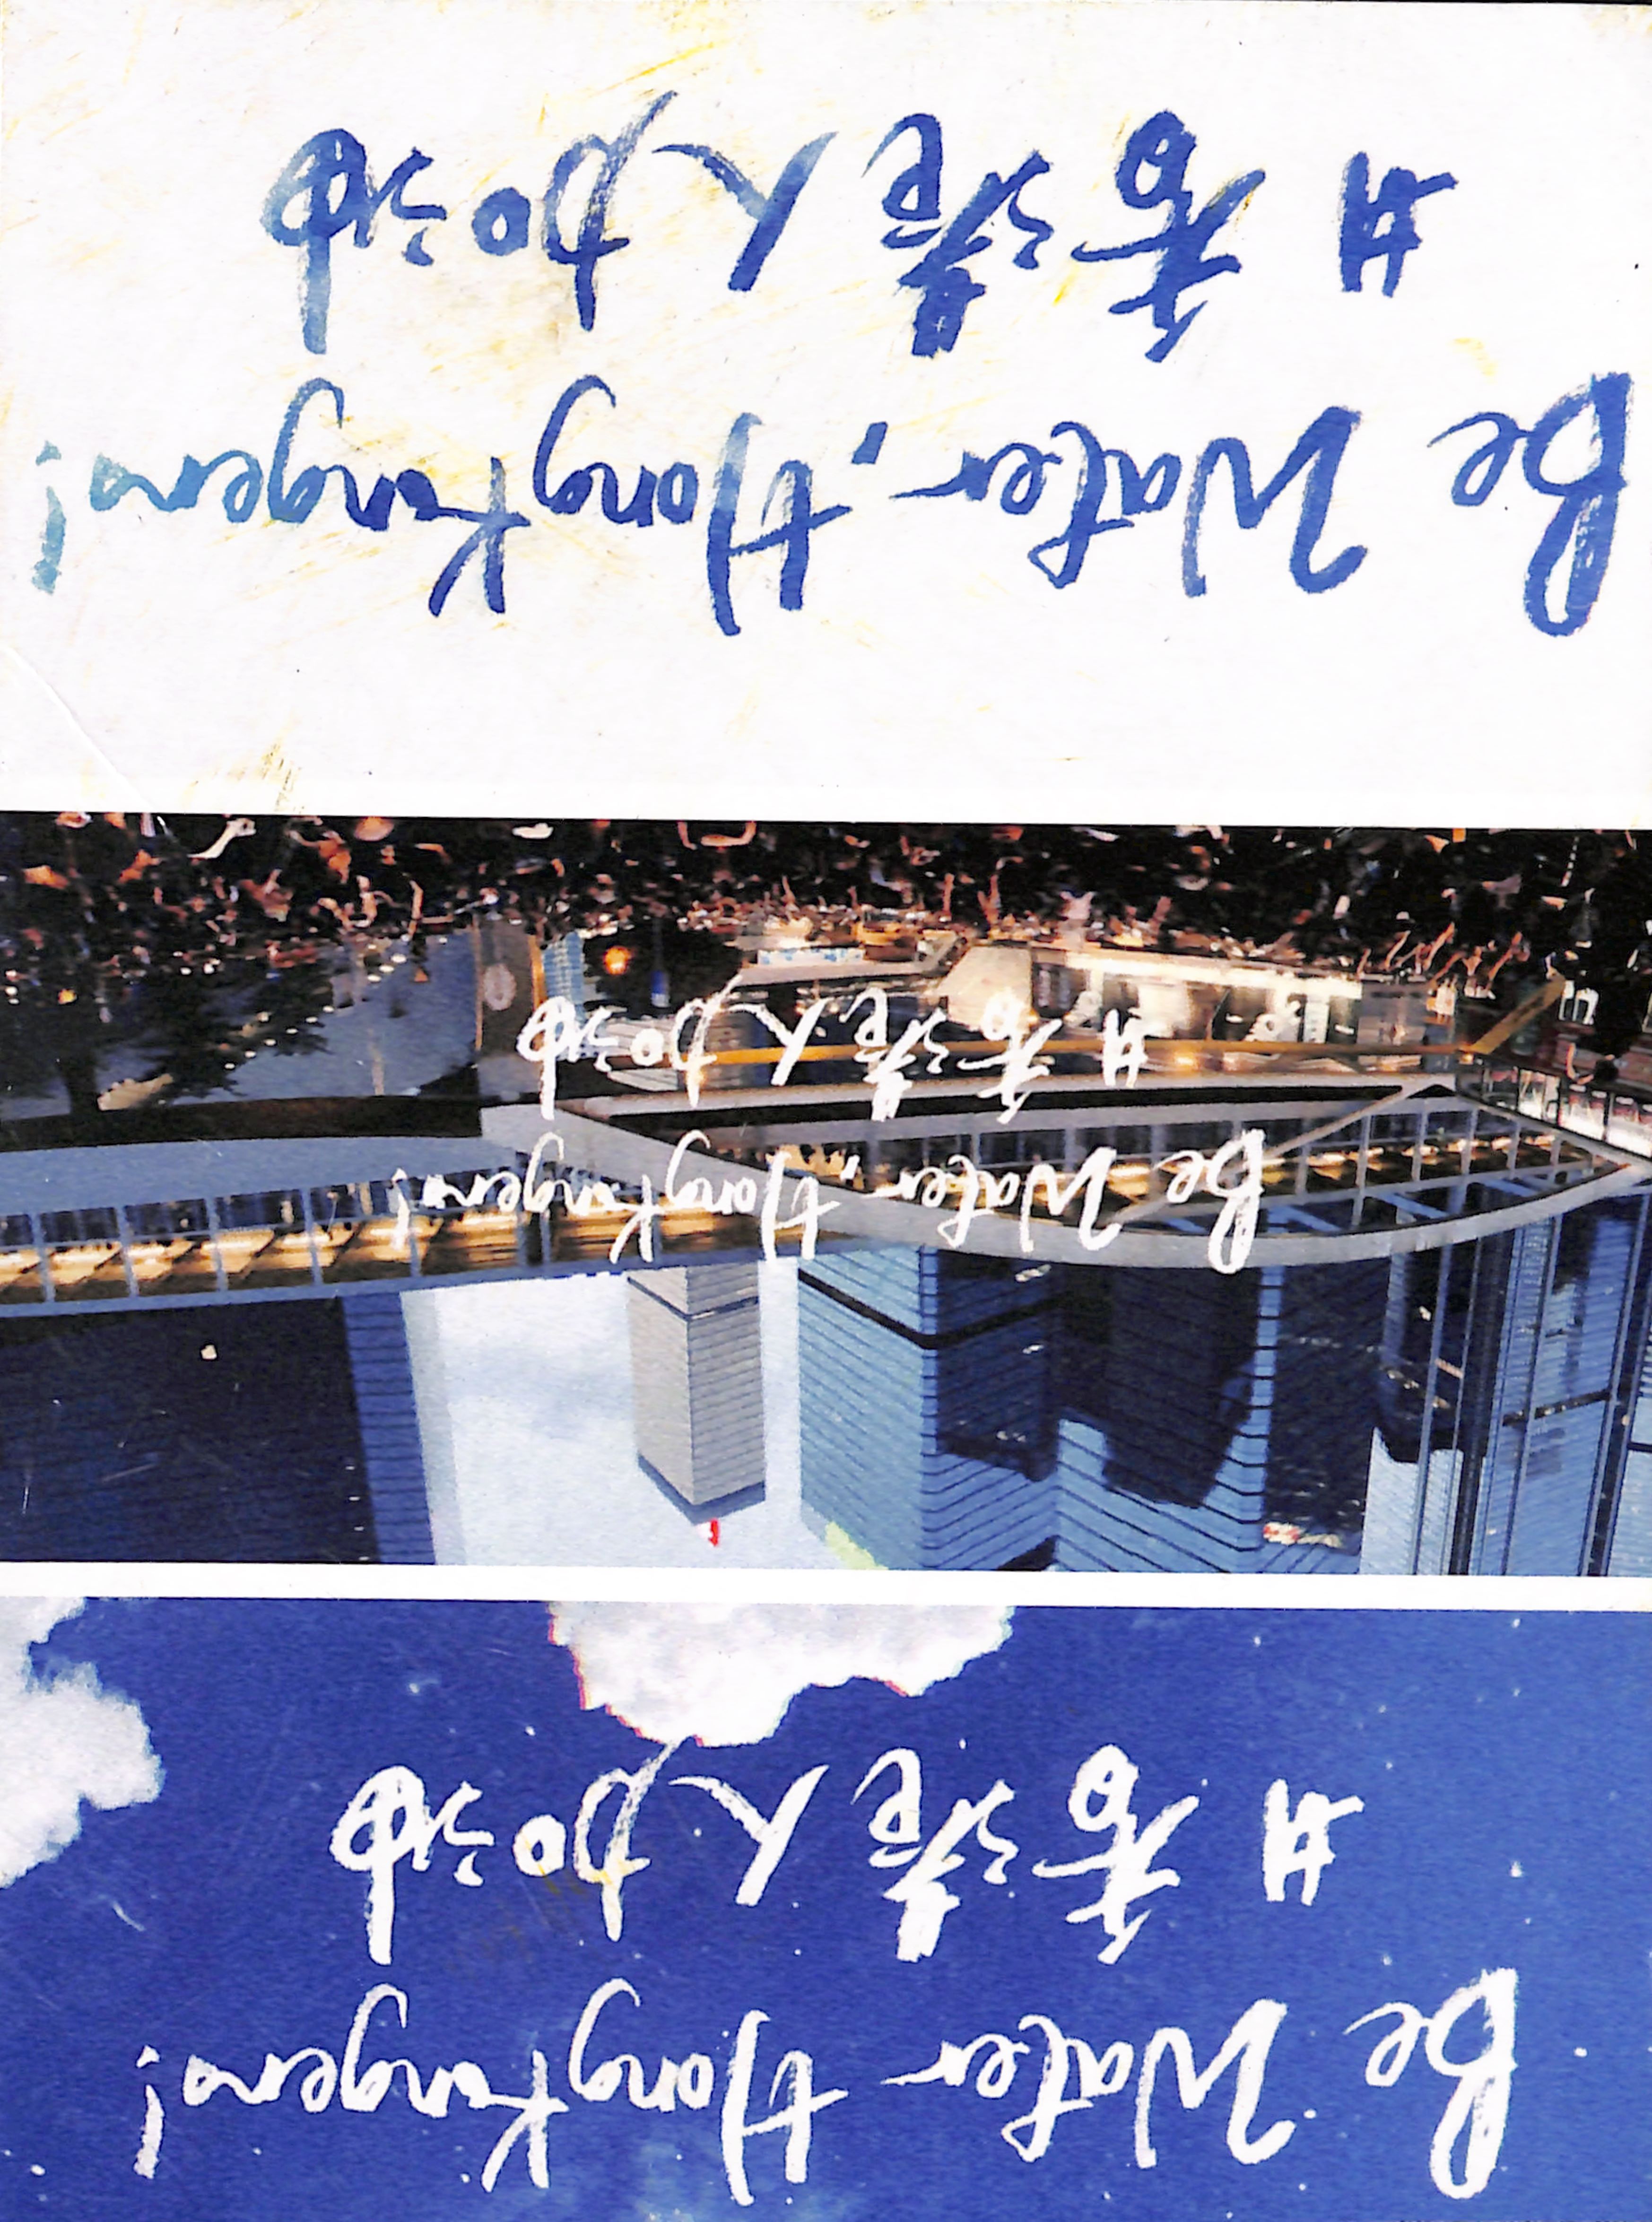 Be Water HongKongers!
# 香港人加油
Be Water, HongKongers!
# 香港人加油
Be Water, HongKongers!
# 香港人加油